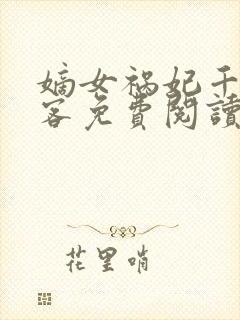 嫡女祸妃千
客免費閱讀
花里哨